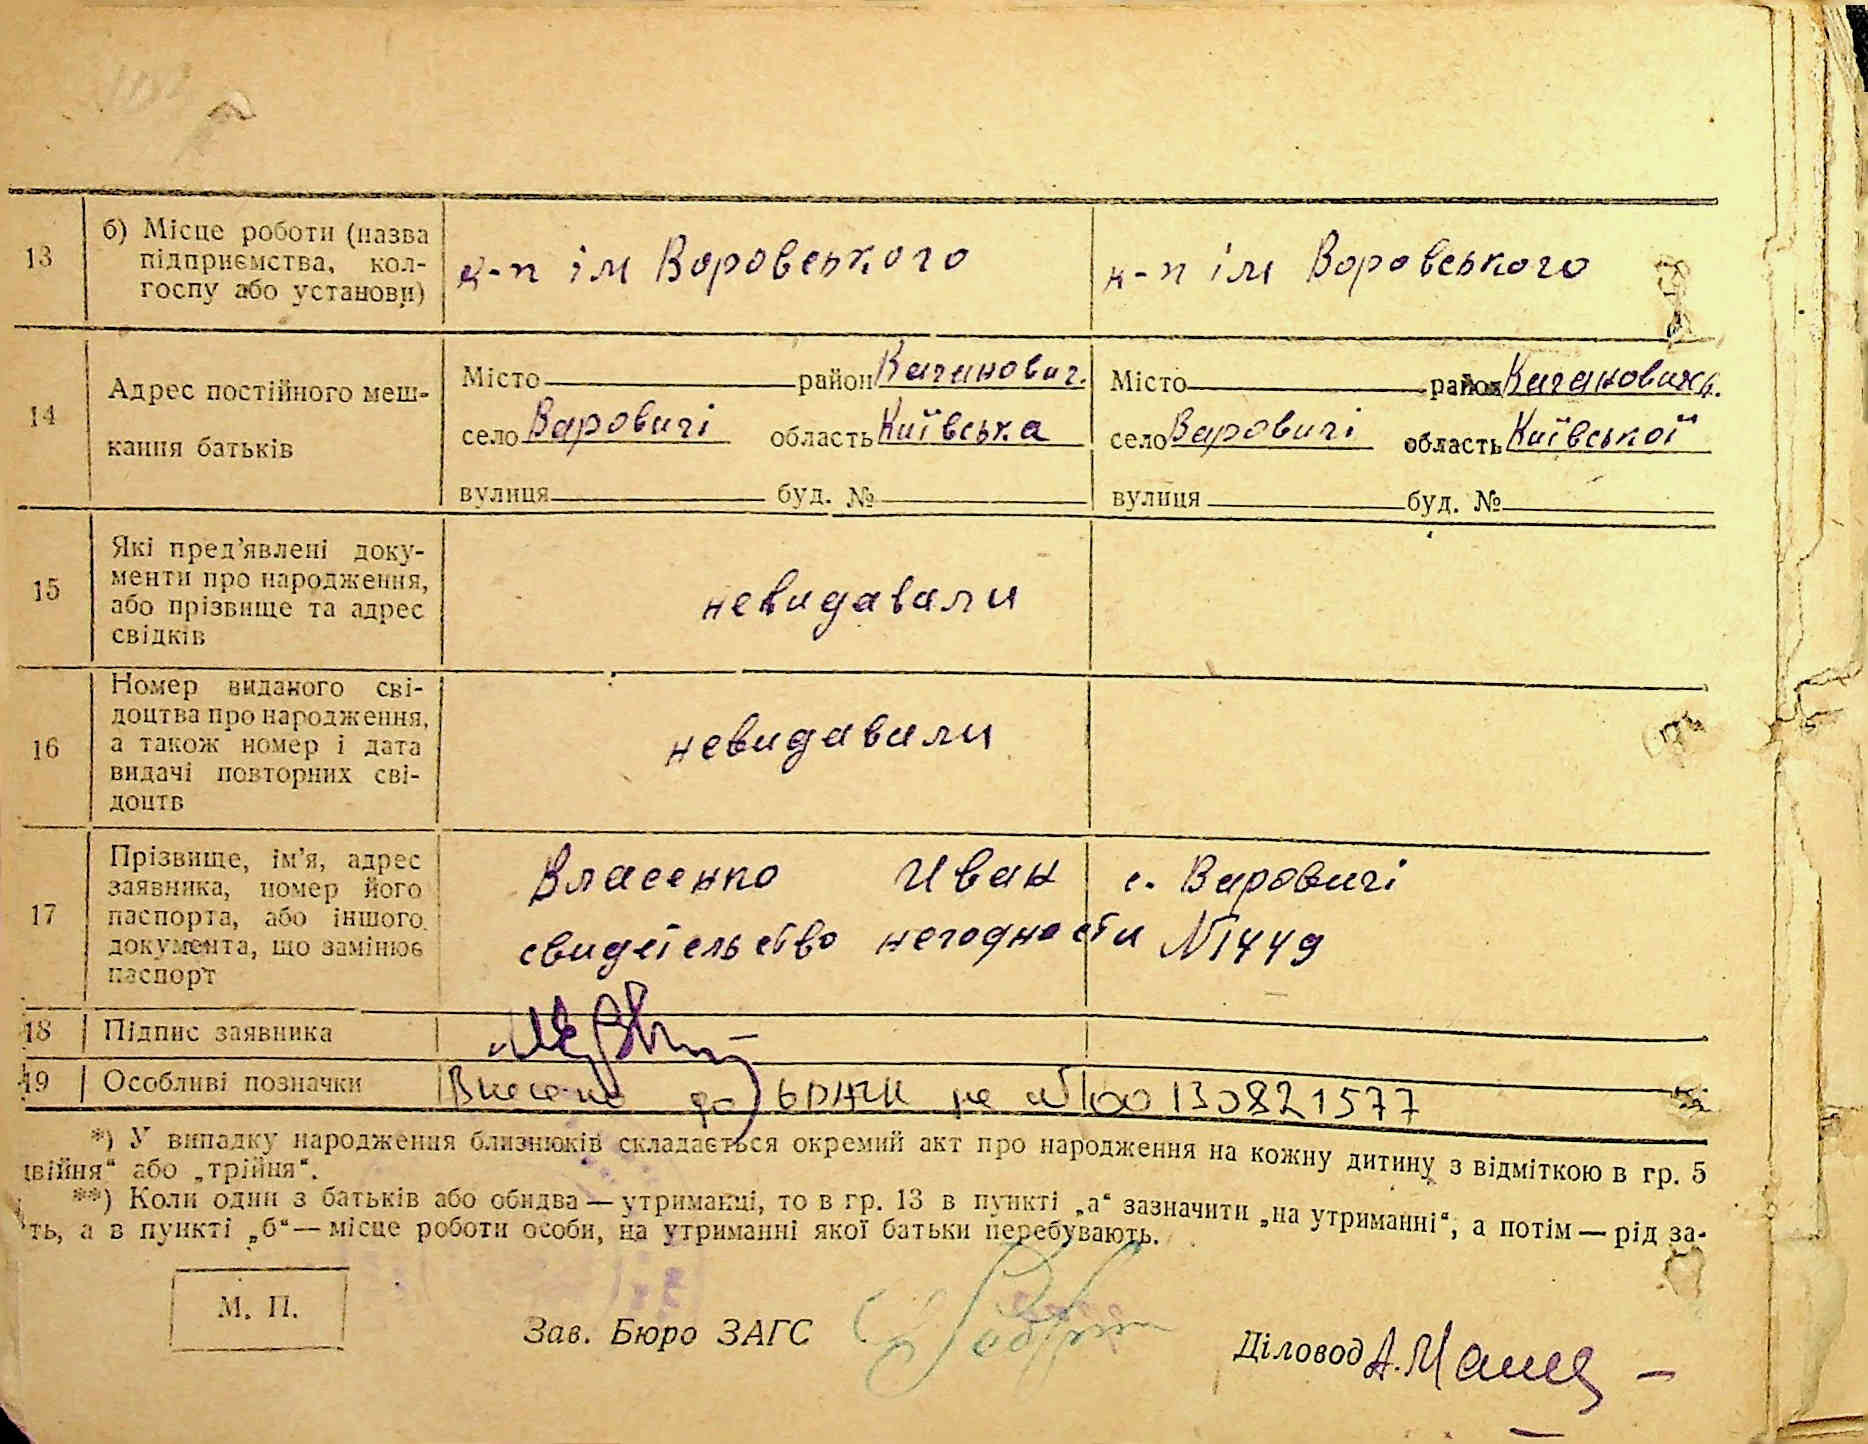 13
б) Місце роботи (назва
підприємства, кол-
госпу або установи)
к-п ім Воровського
к-п ім Воровського
14
Адрес постійного меш-
кання батьків
Місто район Каганович.
село Варовичі область Київська
вулиця буд. №
Місто район Кагановичь.
село Варовичі область Київської
вулиця буд. №
15
Які пред'явлені доку-
менти про народження,
або прізвище та адрес
свідків
невидавали
16
Номер виданого сві-
доцтва про народження,
а також номер і дата
видачі повторних сві-
доцтв
невидавали
17
Прізвище, ім'я, адрес
заявника, номер його
паспорта, або іншого
документа, що замінює
паспорт
Власенко Иван с. Варовичі
свидетельство негодности №1449
18 Підпис заявника
19 Особливі позначки
Внесено до на №00130821577
*) У випадку народження близнюків складається окремий акт про народження на кожну дитину з відміткою в гр. 5
двійня“ або „трійня“.
**) Коли один з батьків або обидва — утриманці, то в гр. 13 в пункті „а“ зазначити „на утриманні“, а потім — рід за-
ть, а в пункті „б“ — місце роботи особи, на утриманні якої батьки перебувають.
М. П.
Зав. Бюро ЗАГС
Діловод А.